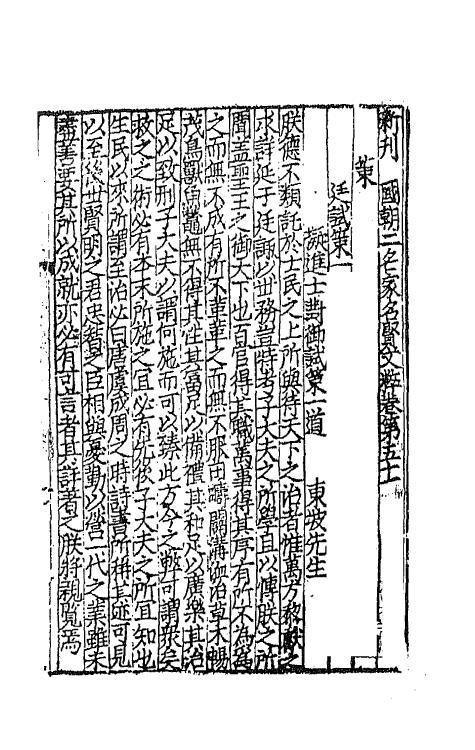 新刊國朝二百家名賢文粹卷第五十
策
廷試策一
擬進士對御試策一道 東坡先生
朕德不類託於士民之上所與待天下之治者惟萬方黎獻之
求詳延于廷諏以世務豈特考子大夫之所學且以博朕之所
聞盖聖王之御天下也百官得其職萬事得其序有所不為為
之而無不成有所不革革之而無不服田疇闢溝洫治草木暢
茂鳥獸魚鼈無不得其性其富足以備禮其和足以廣樂其治
足以致刑子大夫以謂何施而可以臻此方今之弊可謂衆矣
救之之術必有本末所施之宜必有先後子大夫之所宜知也
生民以來所謂至治必曰唐虞成周之時詩書所稱其迹可見
以至後世賢明之君忠智之臣相與憂勤以營一代之業雖未
盡善要其所以成就亦必有可言者其詳著之朕將親覽焉